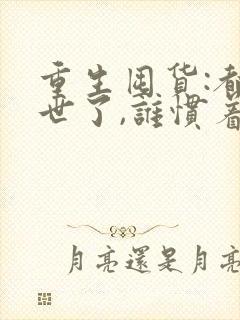 重生囤货:都
世了,誰慣着
月亮還是月亮